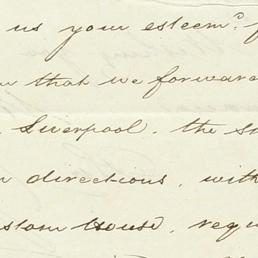 us your esteem^d.
that we forward
Liverpool. the
directions. with
House, requ